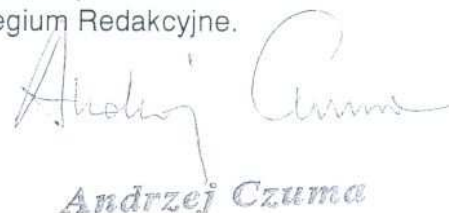 egium Redakcyjne.
Andrzej Czuma
Andrzej Czuma